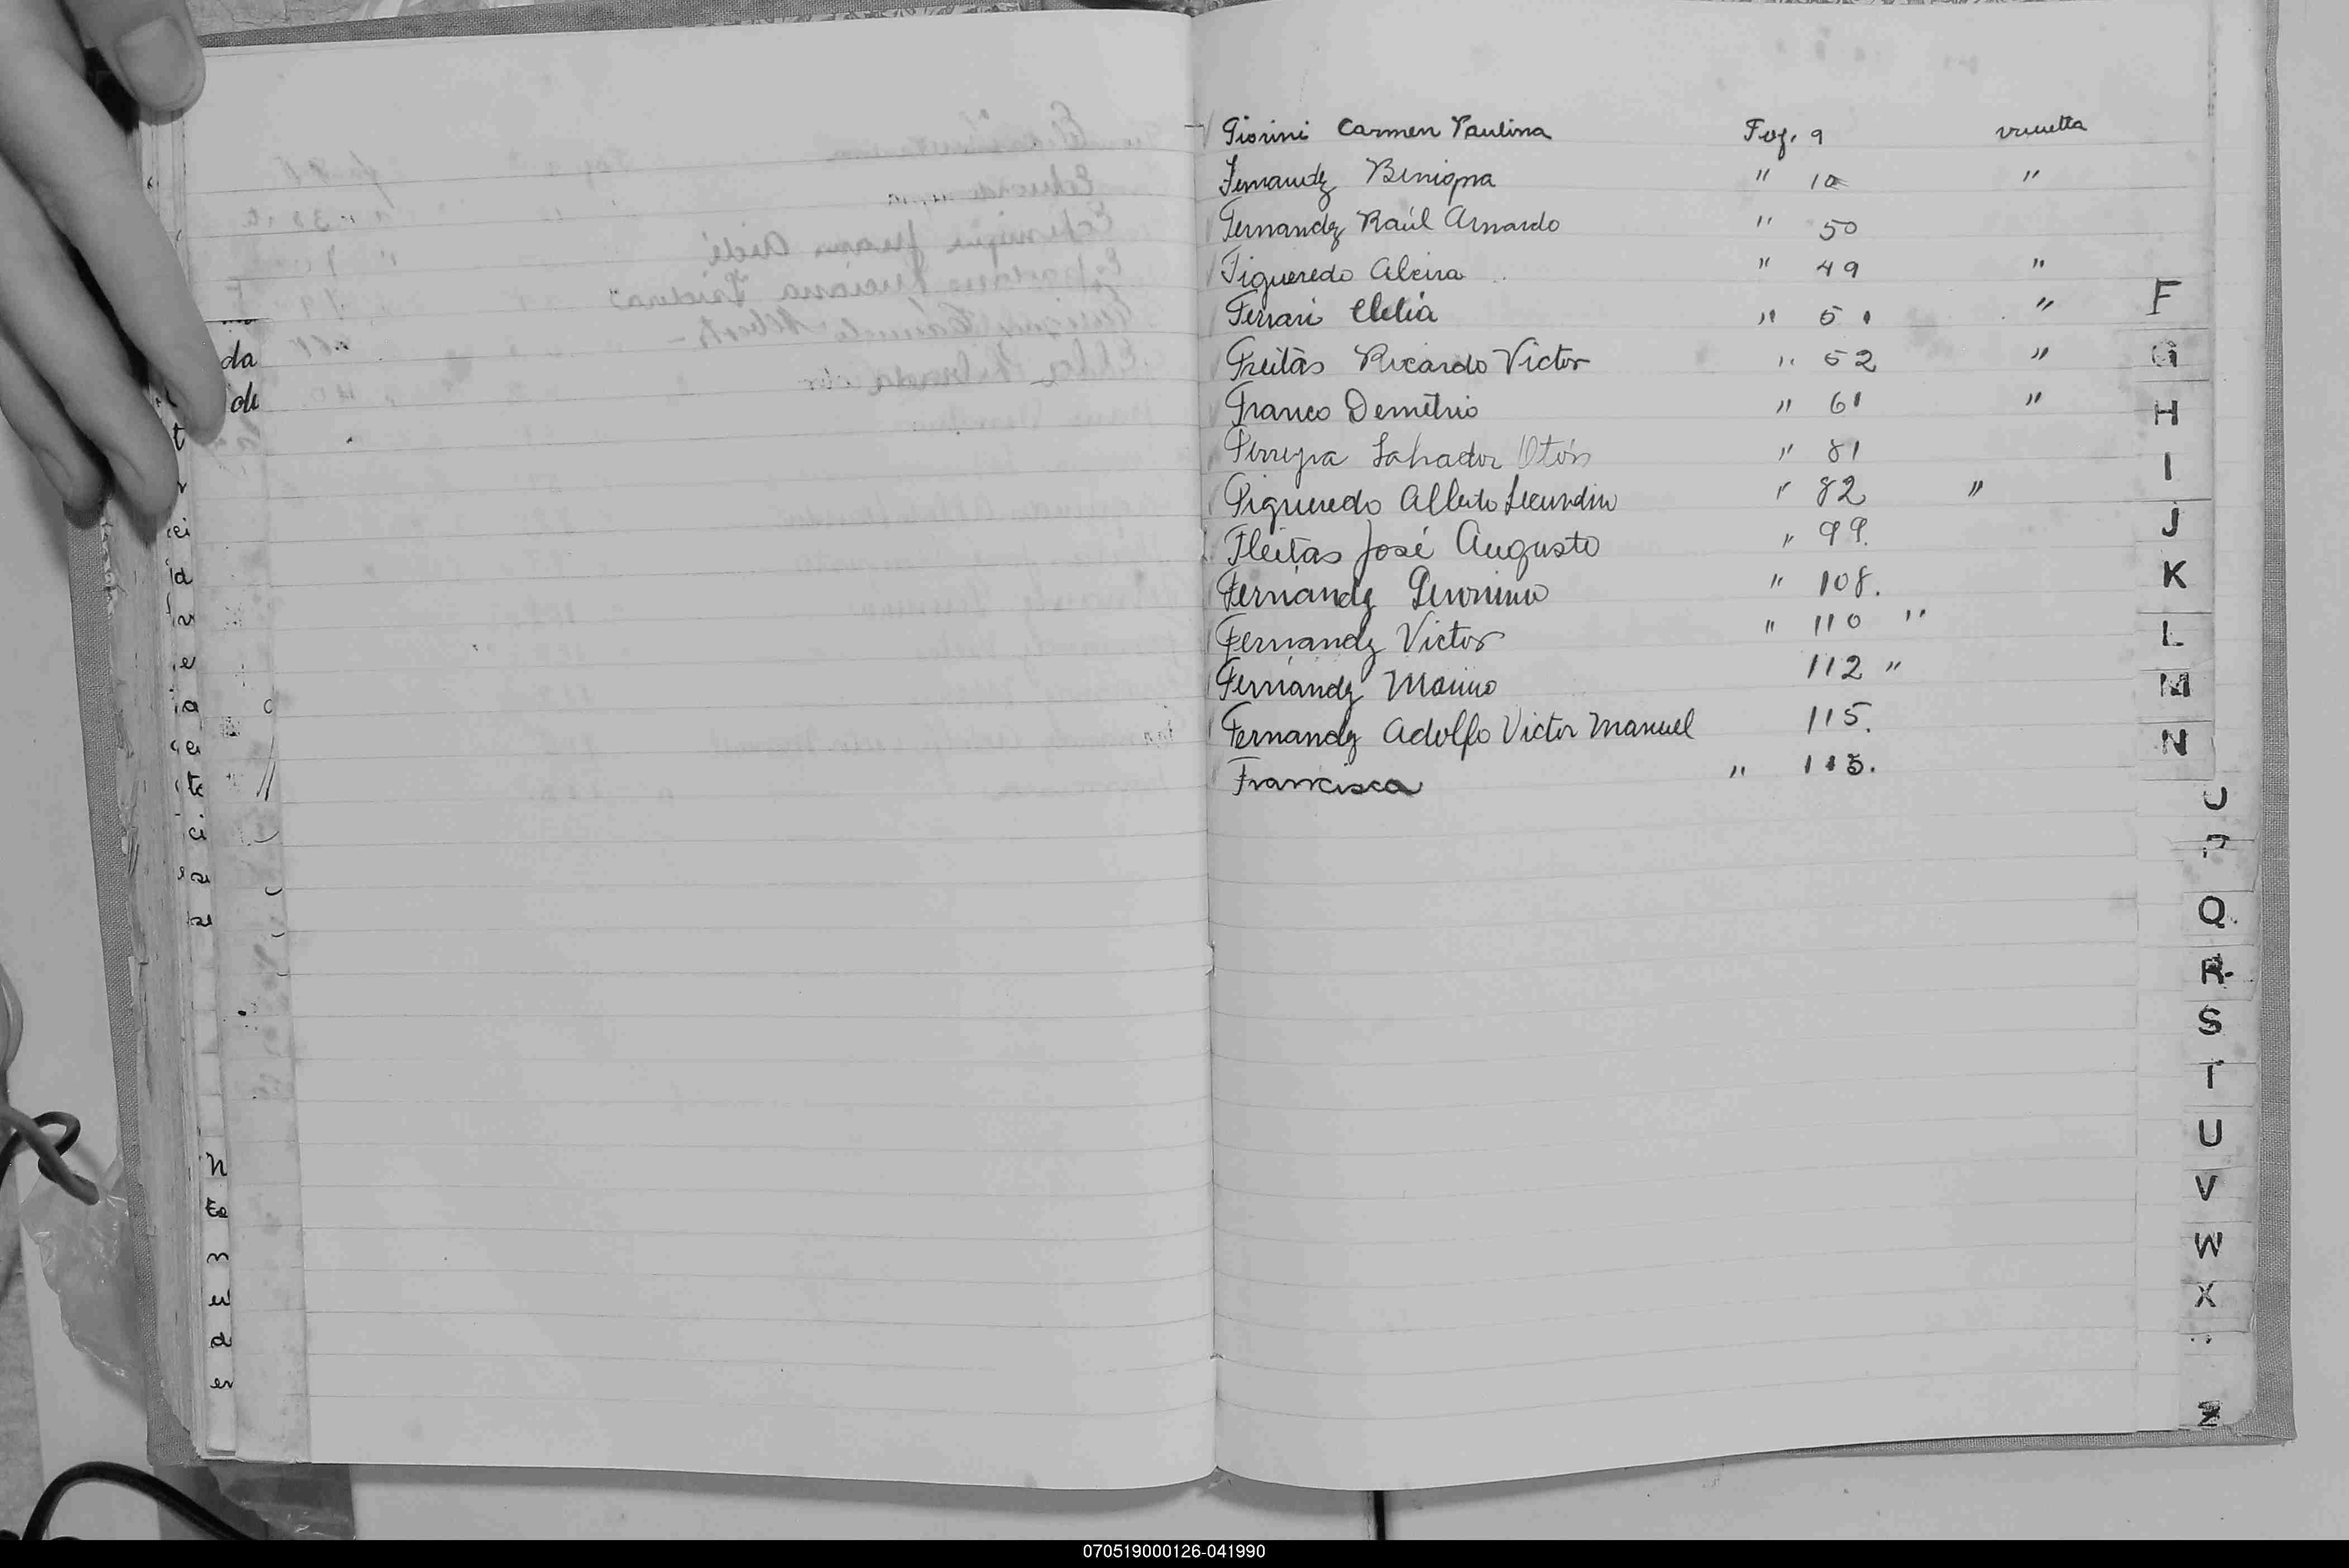 Fiorini Carmen Paulina Foj. 9 vuelta
Fernandez Benigna " 10 "
Fernandez Raúl Arnardo " 50
Figueredo Alcira " 49 "
Ferrari Clelia " 51 "
Freitas Ricardo Victor " 52 "
Franco Demetrio " 61 "
Ferreyra Salvador Otón " 81
Figueredo Alberto Secundin " 82 "
Fleitas José Augusto " 99.
Fernandez Geronimo " 108.
Fernandez Victor " 110 "
Fernandez 112 "
Fernandez Adolfo Victor Manuel 115.
Francisca " 115.
F
G
H
I
J
K
L
M
N
Q
R
S
T
U
V
W
X
Z
da
de
070519000126-041990